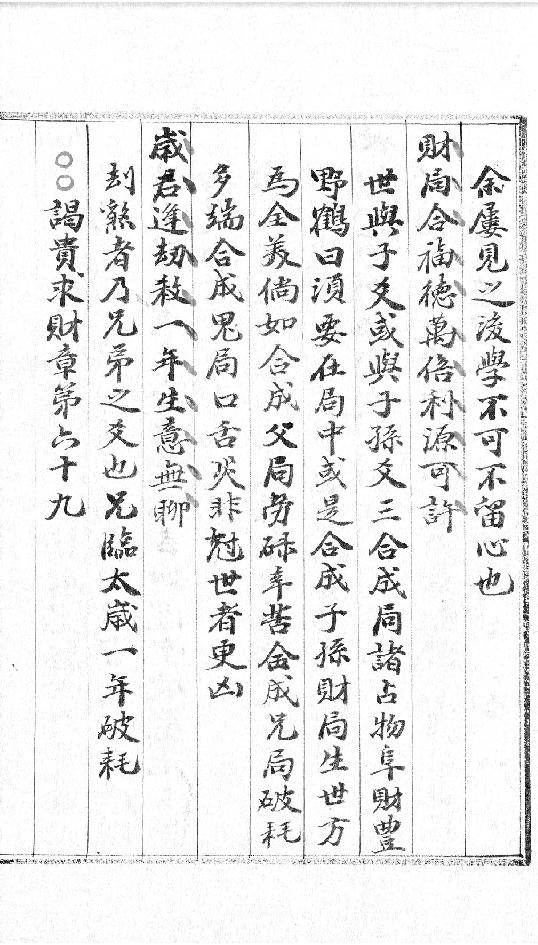 余屢見之後學不可不留心也
財局合福徳萬倍利源可許
世與子爻或與子孫爻三合成局諸占物阜財豊
野鶴曰須要在局中或是合成子孫財局生世方
為全羙倘如合成父局勞碌辛苦合成兄局破耗
多端合成鬼局口舌災非尅世者更凶
歲君逢劫殺一年生意無聊
刦煞者乃兄弟之爻也兄臨太歲一年破耗
○○謁貴求財章第六十九